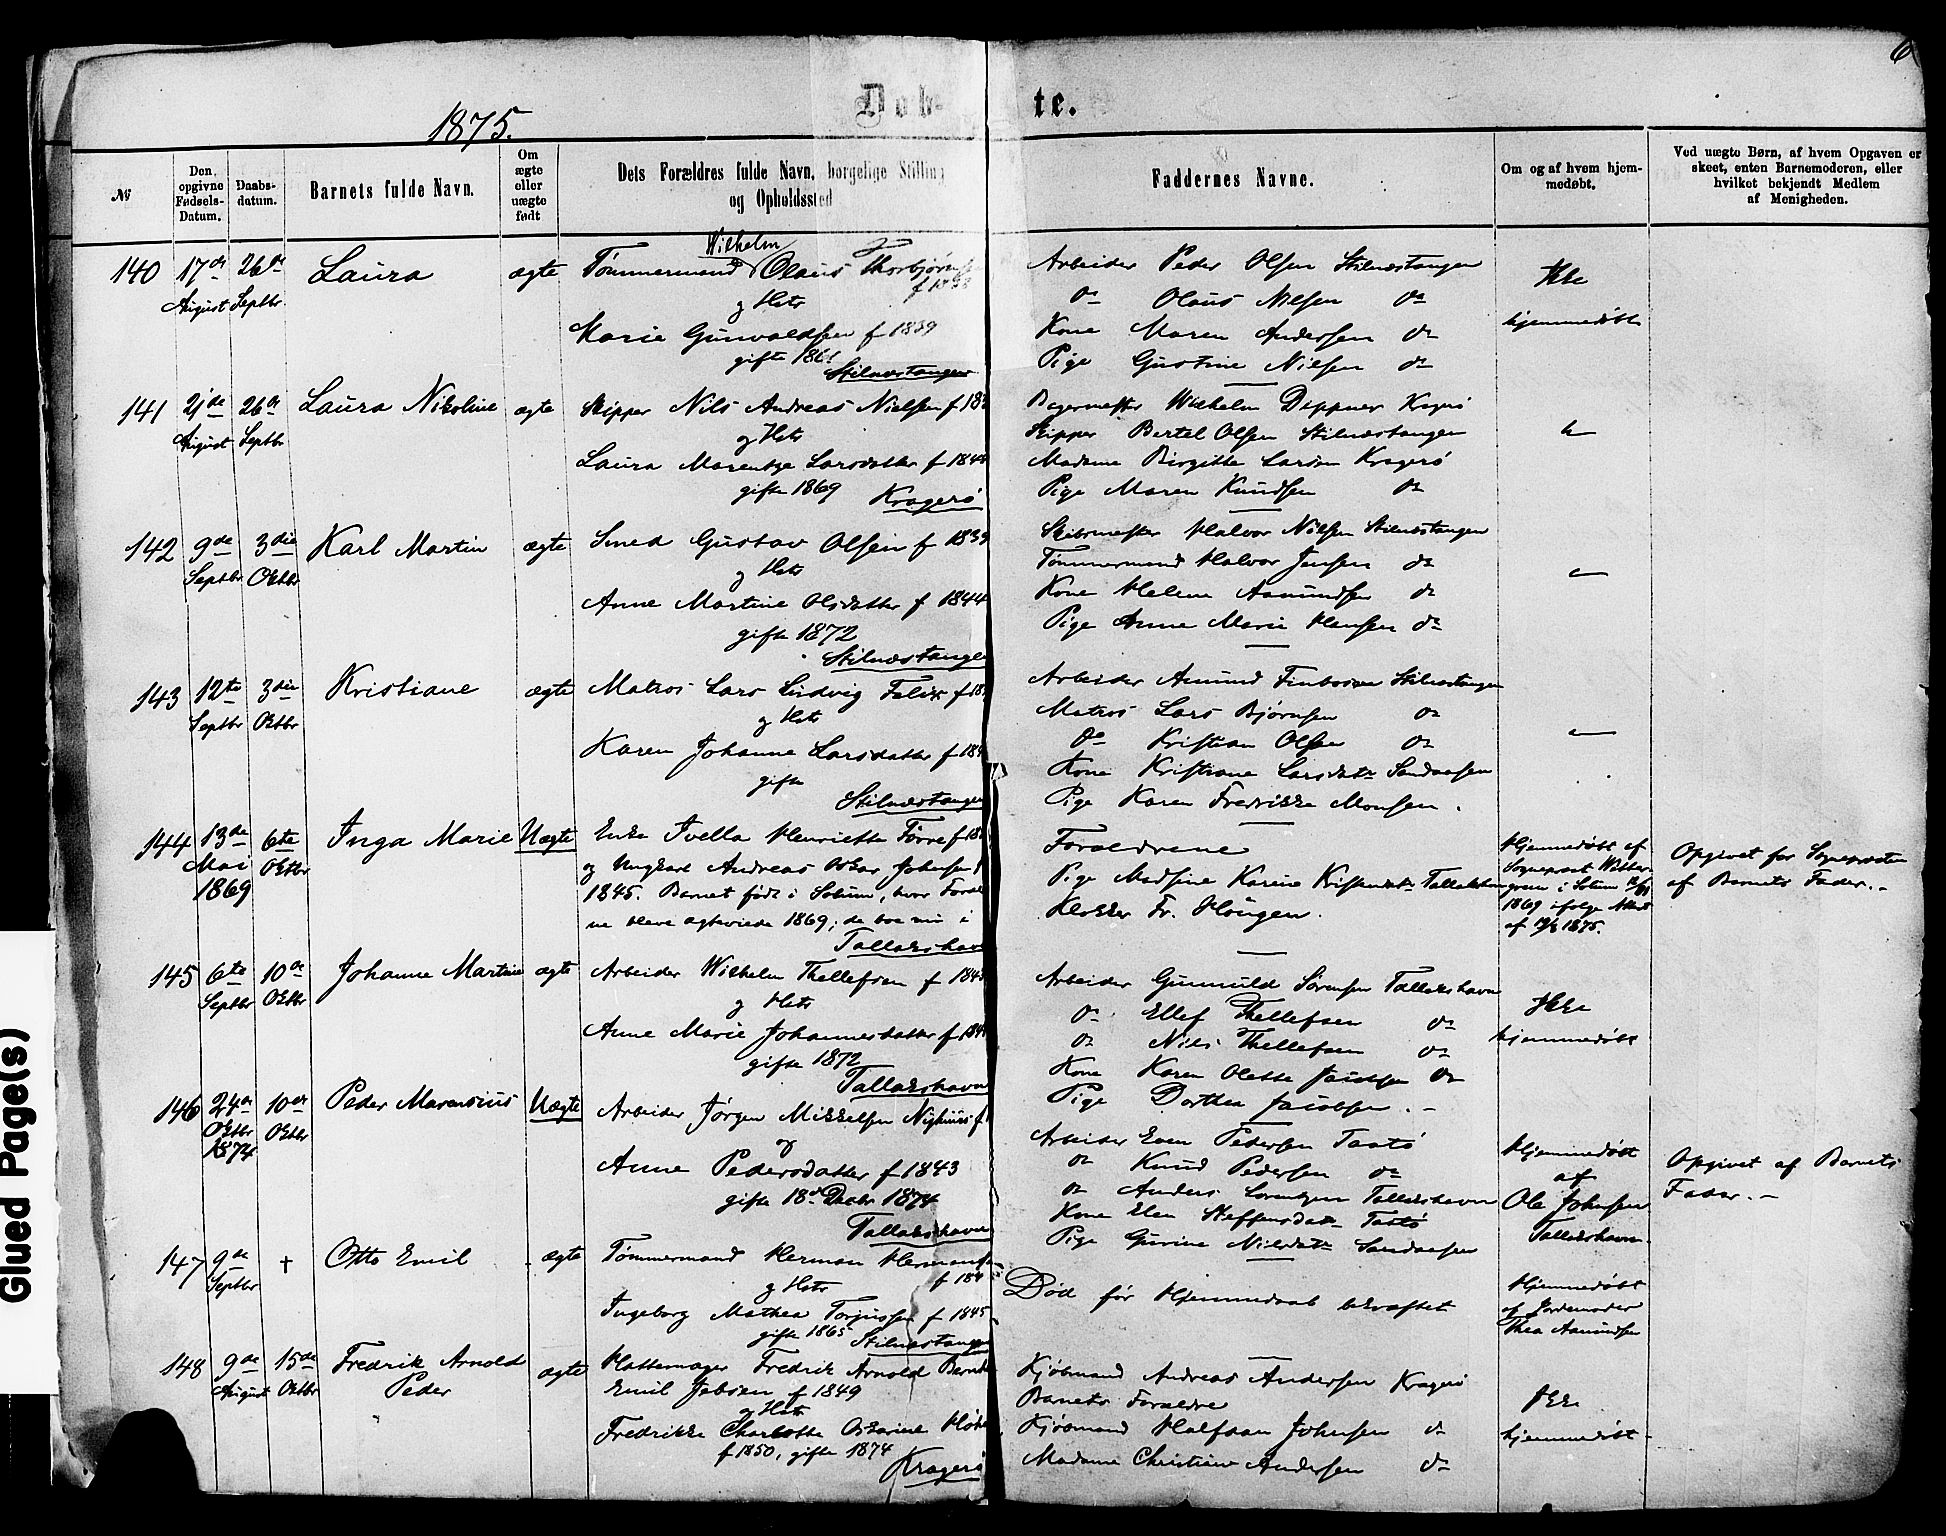 6
Døb te.
1875.
№
Den opgivne Fødsels-Datum.
Daabs-datum.
Barnets fulde Navn.
Om ægte eller uægte født
Dets Forældres fulde Navn, borgelige Stilling og Opholdssted
Faddernes Navne.
Om og af hvem hjem-medøbt.
Ved uægte Børn, af hvem Opgaven er skeet, enten Barnemoderen, eller hvilket bekjendt Medlem af Menigheden.
140 17de August 26de Septbr Laura ægte
Wilhelm
Tømmermand Olaus Thorbjørns
og Hstr
Marie Gunvaldsen f 1839
gifte 1861
Stilnæstangen
Arbeider Peder Olsen Stilnæstangen
do Olaus Nilsen do
Kone Maren Andersen do
Pige Gustine Nielsen do
Ikke
hjemmedøbt
141 21de August 26de Septbr Laura Nikoline ægte
Skipper Nils Andreas Nielsen f 18
og Hstr
Laura Marentze Larsdatter f 184
gifte 1869
Kragerø
Bagermester Wilhelm Dippner Kragerø
Skipper Bertel Olsen Stilnæstangen
Madame Birgitte Larsen Kragerø
Pige Maren Knudsen do
142 9de Septbr 3die Oktbr Karl Martin ægte
Smed Gustav Olsen f 1839
og Hstr
Anne Martine Olsdatter f 1844
gifte 1872
Stilnæstangen
Skibsmester Halvor Nilsen Stilnæstangen
Tømmermand Halvor Jensen do
Kone Helene Aamundsen do
Pige Anne Marie Hansen do
143 12te Septbr 3die Oktbr Kristiane ægte
Matros Lars Ludvig Felix f 18
og Hstr
Karen Johanne Larsdatter f 184
gifte
Stilnæstangen
Arbeider Amund Finbosen Stilnæstangen
Matros Lars Bjørnsen do
do Kristian Olsen do
Kone Kristiane Larsdatr Sandaasen
Pige Karen Fredrikke Monsen.
144 13de Mai 1869 6te Oktbr Inga Marie Uægte
Enke Ivella Henriette Førre f 18
og Ungkarl Andreas Oskar Johnsen f
1845. Barnet født i Solum, hvor Foræl
ne bleve ægteviede 1869; de boe nu i
Tallakshavn
Forældrene
Pige Madsine Karine Kristensdatr Tallakshavn
Klokker Fr. Hougen.
Hjemmedøbt af
Sogneprest
i Solum
1869 ifølge Attest
af 1875.
Opgivet for Sognepresten
af Barnets Fader.-
145 6te Septbr 10de Oktbr Johanne Martine ægte
Arbeider Wilhelm Thellefsen f 184
og Hstr
Anne Marie Johannesdatter f 184
gifte 1872
Tallakshavn
Arbeider Gunnuld Sørensen Tallakshavn
do Ellef Thellefsen do
do Nils Thellefsen do
Kone Karen Olette Jacobsen do
Pige Dorthea Jacobsen. -
Ikke
hjemmedøbt
146 24de Oktbr 1874 10de Oktbr Peder Marensius Uægte
Arbeider Jørgen Mikkelsen Nighuus f
og
Anne Pedersdatter f 1843
gifte 18de Decbr 1874
Tallakshavn
Arbeider Even Pedersen Taatø
do Knud Pedersen do
do Anders Lorentzen Tallakshavn
Kone Elen Steffensdatr Taatø
Pige Gurine Nilsdatr Sandaasen
Hjemmedøbt
af
Ole Johnsen
Tallakshavn.
Opgivet af Barnets
Fader. -
147 9de Septbr † Otto Emil ægte
Tømmermand Herman Hermansen
f 184
og Hstr
Ingeborg Mathea Torjussen f 1845
gifte 1865 Stilnæstangen
Død før Hjemmedaab bekræftet
Hjemmedøbt
af Jordemoder
Thea Aamundsen
148 9de August 15de Oktbr Fredrik Arnold Peder ægte
Hattemager Fredrik Arnold Bernt
Emil Jebsen f 1849
og Hstr
Fredrikke Charlotte Oskarine
f 1850, gifte 1874
Kragerø
Kjøbmand Andreas Andersen Kragerø
Barnets Forældre
Kjøbmand Halfdan Johnsen do
Madame Christiane Andersen do
Ikke
hjemmedøbt
Glued Page(s)